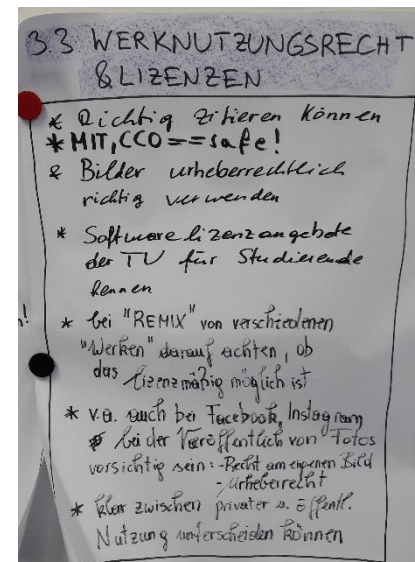 3.3 WERKNUTZUNGSRECHT
& LIZENZEN
* Richtig zitieren können
* MIT, CC0 == safe!
* Bilder urheberrechtlich
richtig verwenden
* Softwarelizenzangebote
der TU für Studierende
kennen
n!
* bei "REMIX" von verschiedenen
"Werken" darauf achten, ob
das lizenzmäßig möglich ist
* v.a. auch bei Facebook, Instagram
bei der Veröffentlich von Fotos
vorsichtig sein: - Recht am eigenen Bild
- Urheberrecht
* klar zwischen privater u. öffentl.
Nutzung unterscheiden können